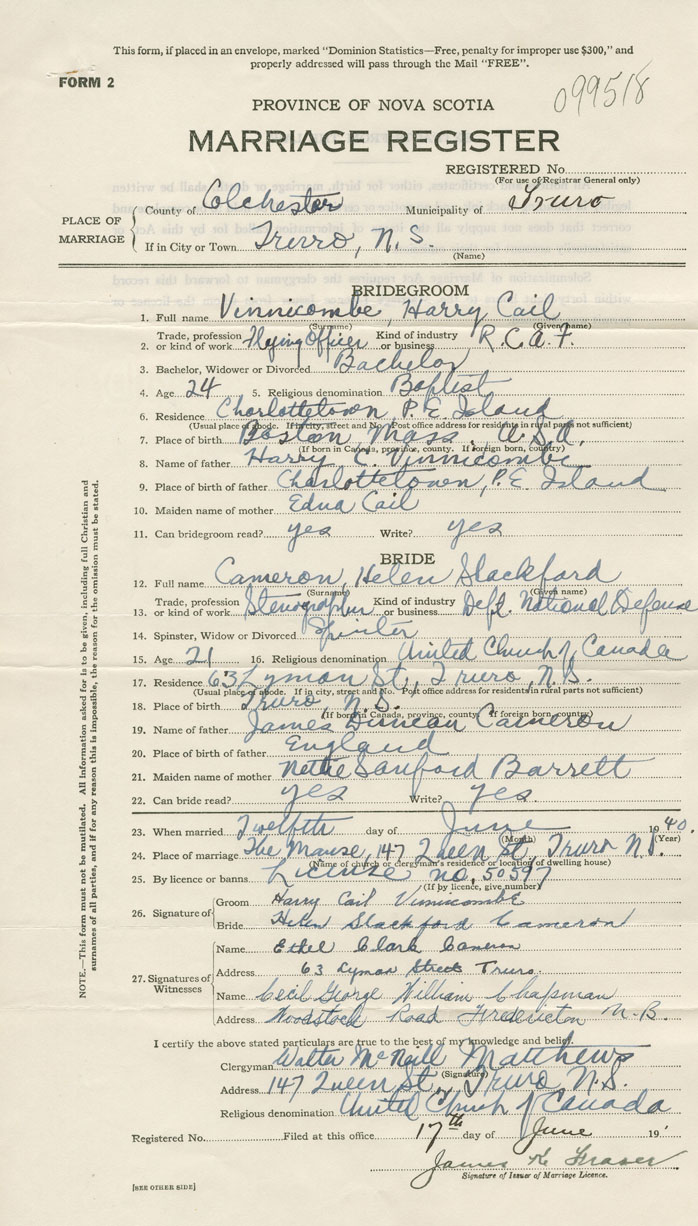 This form, if placed in an envelope, marked "Dominion Statistics—Free, penalty for improper use $300," and
properly addressed will pass through the Mail "FREE".
FORM 2
099518
PROVINCE OF NOVA SCOTIA
MARRIAGE REGISTER
REGISTERED No.
(For use of Registrar General only)
PLACE OF MARRIAGE
County of Colchester Municipality of Truro
If in City or Town Truro, N.S.
(Name)
BRIDEGROOM
1. Full name Vinnicombe, Harry Cail
(Surname) (Given name)
2. Trade, profession or kind of work Flying Officer Kind of industry or business R.C.A.F.
3. Bachelor, Widower or Divorced Bachelor
4. Age 24 5. Religious denomination Baptist
6. Residence Charlottetown, P.E. Island
(Usual place of abode. If in city, street and No. Post office address for residents in rural parts not sufficient)
7. Place of birth Boston, Mass. U.S.A.
(If born in Canada, province, county. If foreign born, country)
8. Name of father Harry C. Vinnicombe
9. Place of birth of father Charlottetown, P.E. Island
10. Maiden name of mother Edna Cail
11. Can bridegroom read? yes Write? yes
BRIDE
12. Full name Cameron, Helen Slackford
(Surname) (Given name)
13. Trade, profession or kind of work Stenographer Kind of industry or business Dept. National Defense
14. Spinster, Widow or Divorced Spinster
15. Age 21 16. Religious denomination United Church of Canada
17. Residence 63 Lyman St., Truro, N.S.
(Usual place of abode. If in city, street and No. Post office address for residents in rural parts not sufficient)
18. Place of birth Truro, N.S.
(If born in Canada, province, county. If foreign born, country)
19. Name of father James Duncan Cameron
20. Place of birth of father England
21. Maiden name of mother Nettie Sanford Barrett
22. Can bride read? yes Write? yes.
23. When married Twelfth day of June 1940.
(Month) (Year)
24. Place of marriage The Manse, 147 Queen St., Truro N.S.
(Name of church or clergyman's residence or location of dwelling house)
25. By licence or banns License no. 50597
(If by licence, give number)
26. Signature of
Groom Harry Cail Vinnicombe
Bride Helen Slackford Cameron
27. Signatures of Witnesses
Name Ethel Clark Cameron
Address 63 Lyman Street Truro.
Name Cecil George William Chapman
Address Woodstock Road Fredericton N.B.
I certify the above stated particulars are true to the best of my knowledge and belief.
Clergyman Walter McNeill Matthews
(Signature)
Address 147 Queen St., Truro N.S.
Religious denomination United Church of Canada
Registered No. Filed at this office 17th day of June 19
James K Fraser
Signature of Issuer of Marriage Licence.
[SEE OTHER SIDE]
NOTE.—This form must not be mutilated. All information asked for is to be given, including full Christian and
surnames of all parties, and if for any reason this is impossible, the reason for the omission must be stated.